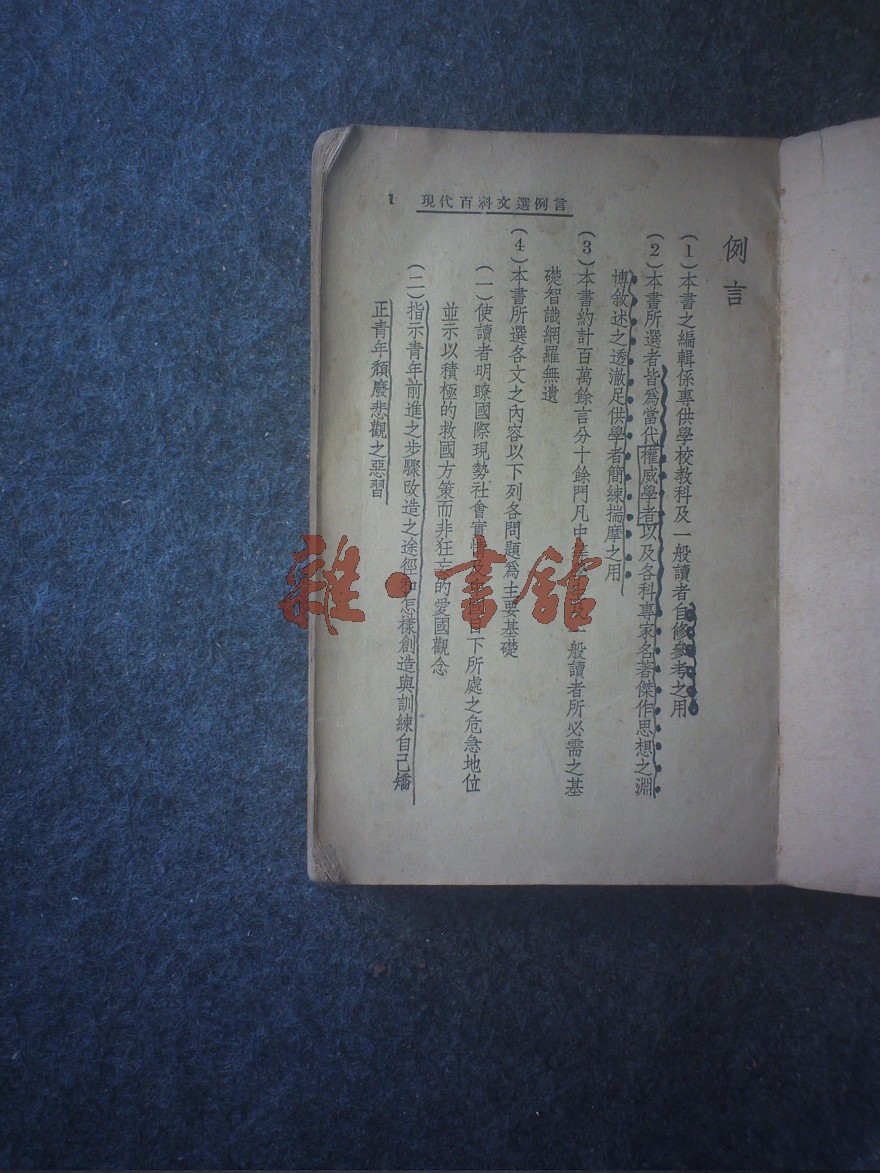 現代百科文選例言
1
例言
(1)本書之編輯係專供學校教科及一般讀者自修參考之用
(2)本書所選者皆爲當代權威學者以及各科專家名著傑作思想之淵
博敘述之透澈足供學者簡練揣摩之用
(3)本書約計百萬餘言分十餘門凡中 一般讀者所必需之基
礎智識網羅無遺
(4)本書所選各文之內容以下列各問題爲主要基礎
(一)使讀者明瞭國際現勢社會實情及 國目下所處之危急地位
並示以積極的救國方策而非狂妄的愛國觀念
(二)指示青年前進之步驟改造之途徑和怎樣創造與訓練自己矯
正青年頹廢悲觀之惡習
雜·書館